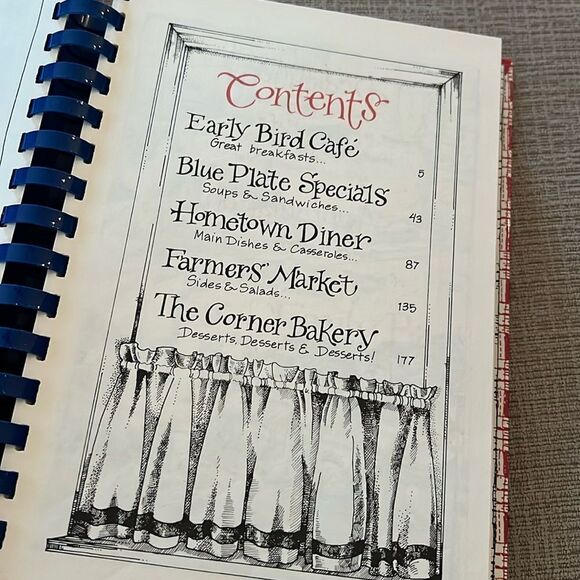 Contents
Early Bird Café
Great breakfasts... 5
Blue Plate Specials
Soups & Sandwiches... 43
Hometown Diner
Main Dishes & Casseroles... 87
Farmers' Market
Sides & Salads... 135
The Corner Bakery
Desserts, Desserts & Desserts! 177